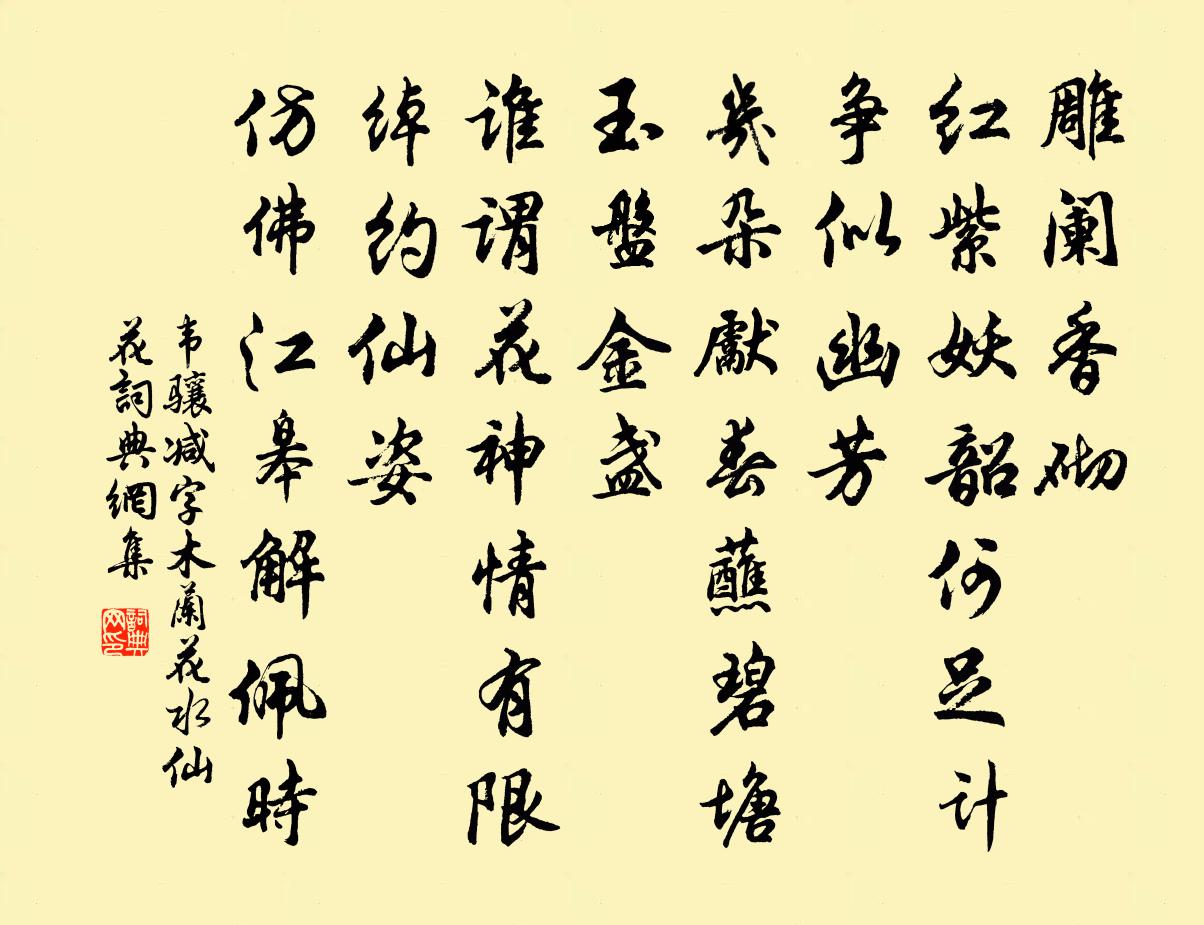 雕阑香砌
红紫妖韶何足计
争似幽芳
幾朵獻春蘸碧塘
玉盤金盏
谁谓花神情有限
绰约仙姿
仿佛江皋解佩時
韦骧减字木蘭花水仙
花詞典網集
詞典网印